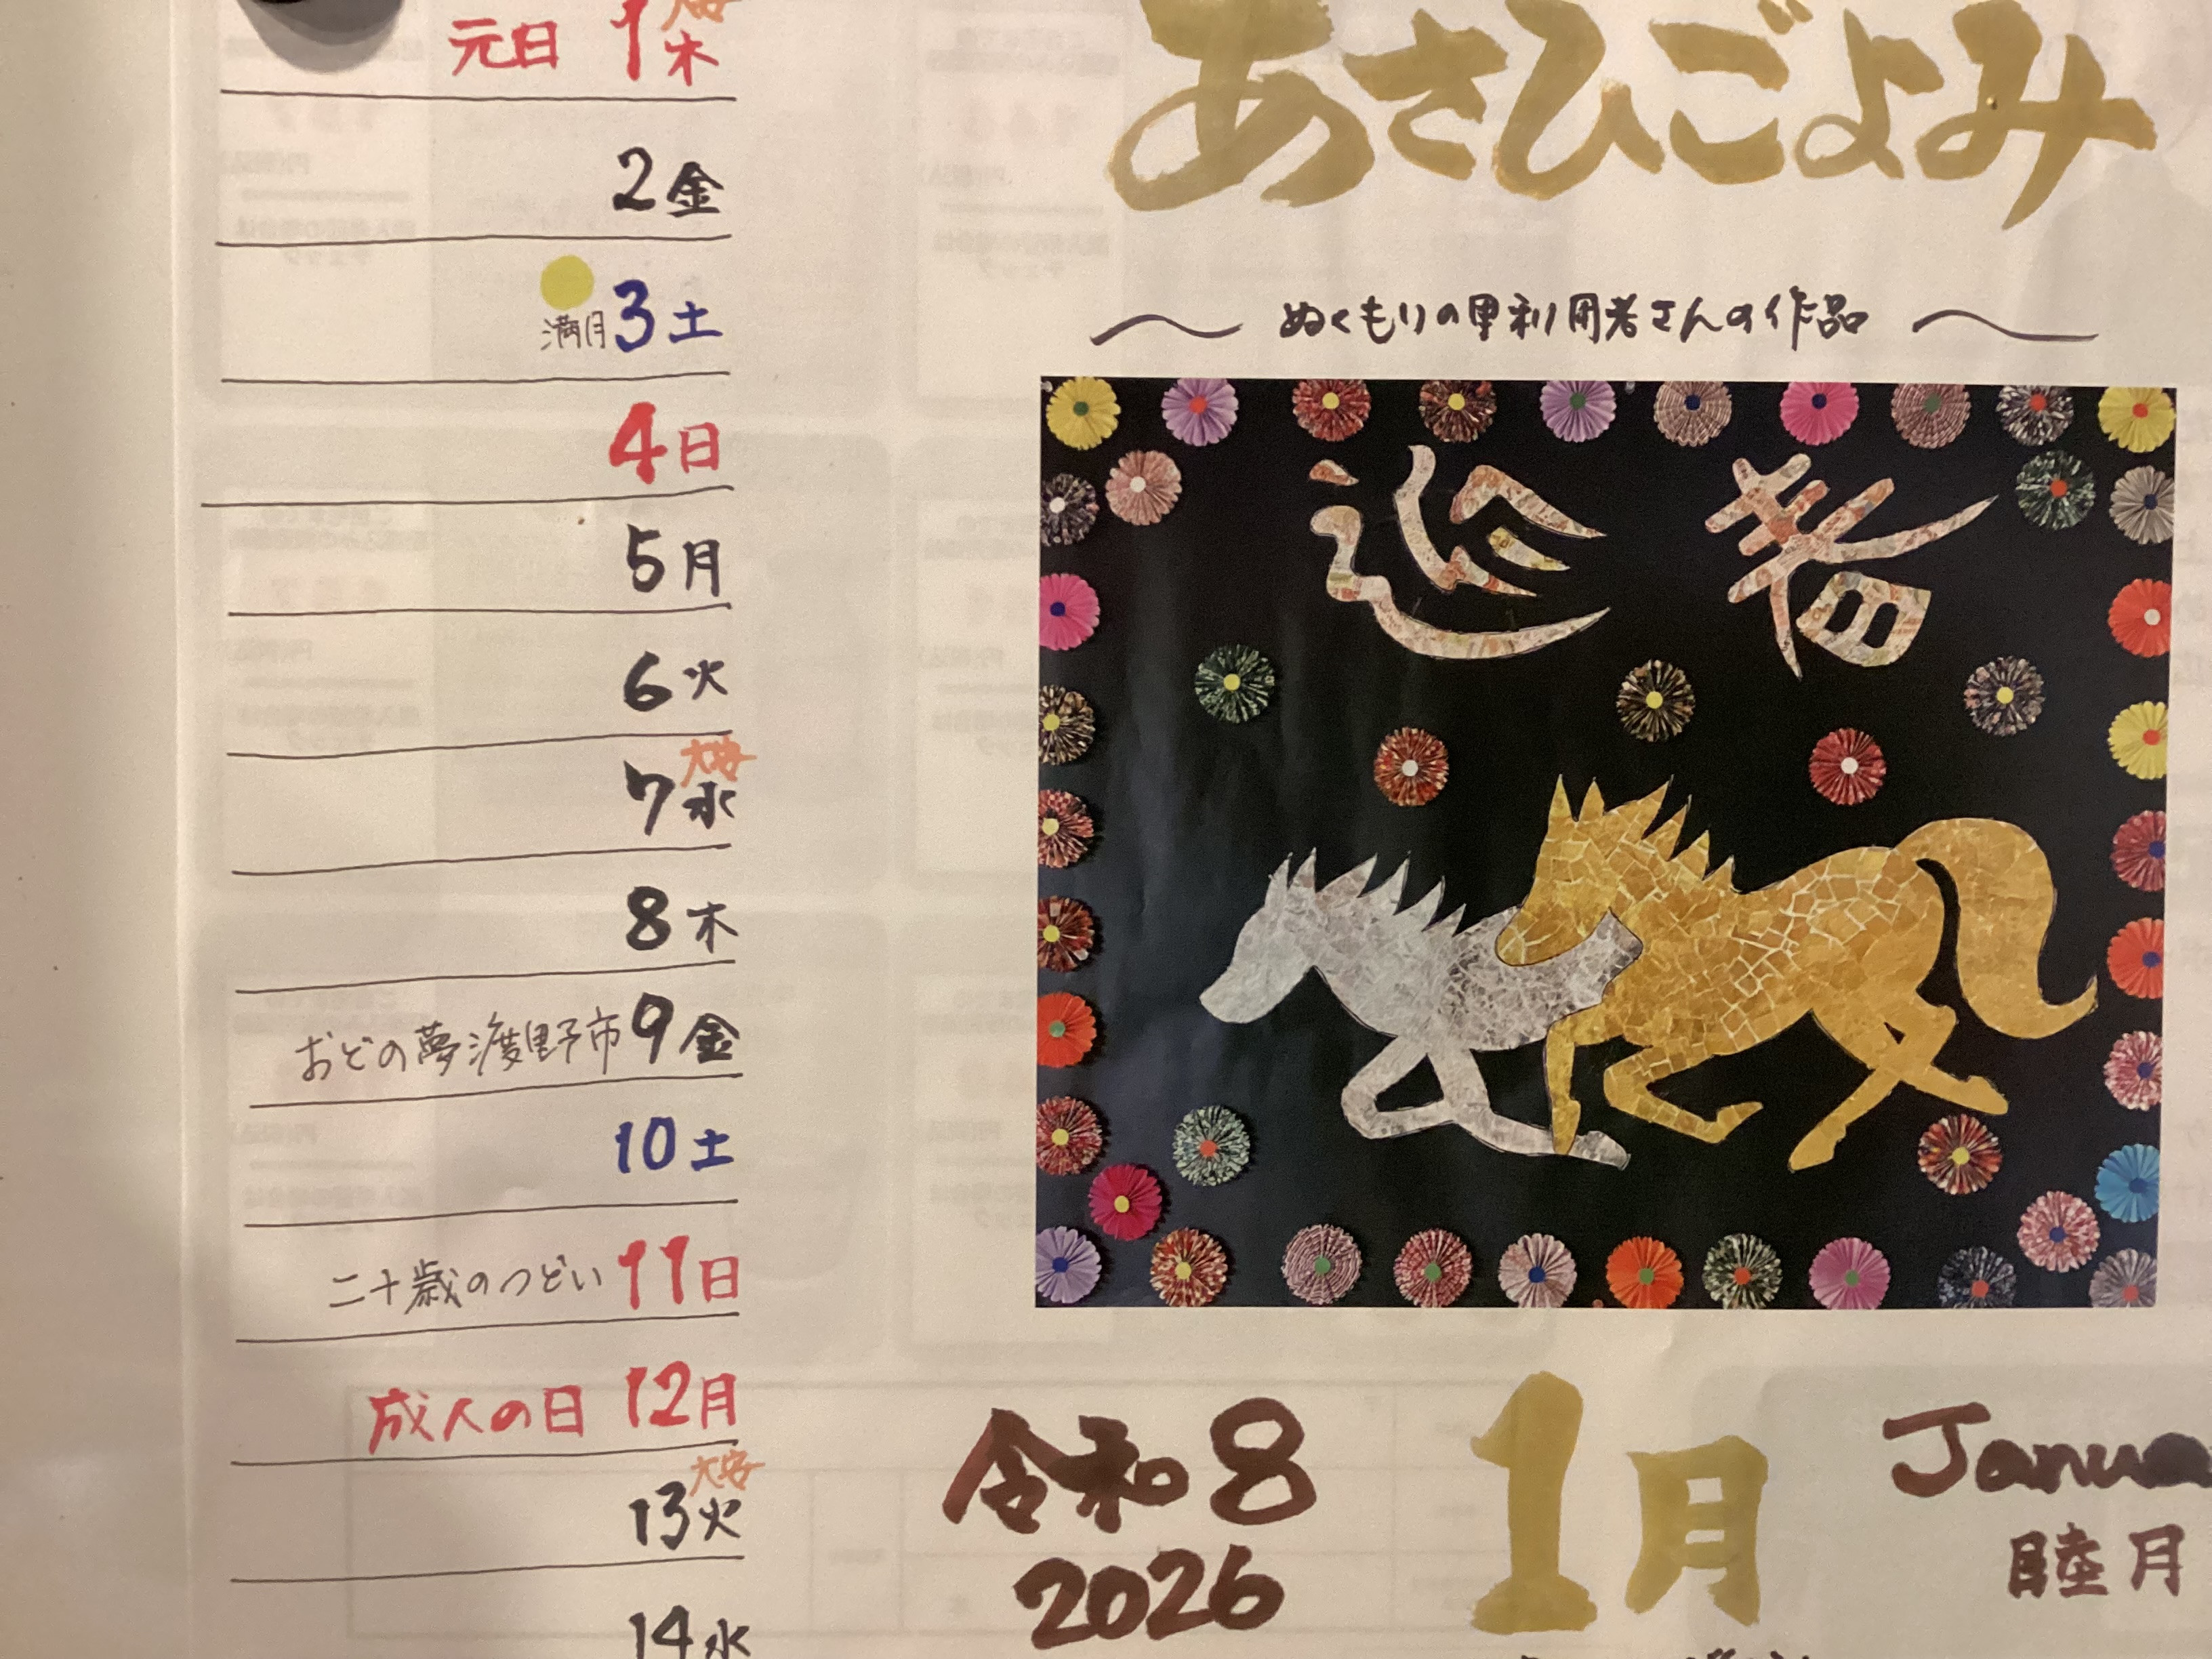 大安
元日 1 木
2 金
満月 3 土
4 日
5 月
6 火
大安
7 水
8 木
おどの夢渡野市 9 金
10 土
二十歳のつどい 11 日
成人の日 12 月
大安
13 火
14 水
あさひごよみ
〜 ぬくもりの里利用者さんの作品 〜
迎 春
令和8
2026
1月
Janua
睦月